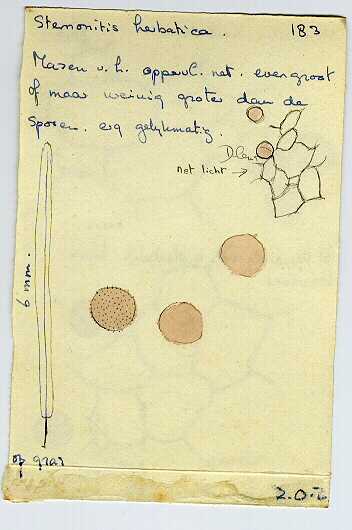 Stemonitis herbatica. 183
Mazen v.h. oppervl. net. even groot
of maar weinig groter dan de
sporen. erg gelijkmatig.
net licht →
6 mm.
op gras